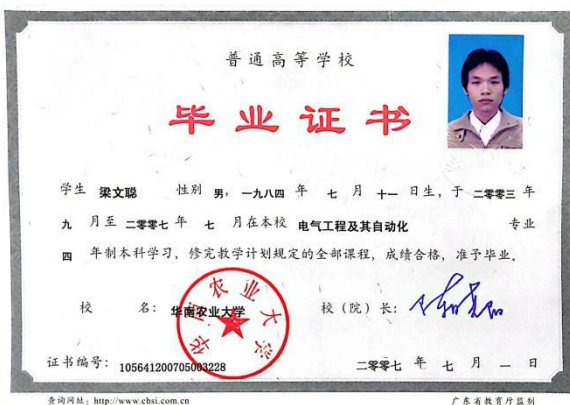 普通高等学校
毕业证书
学生 梁文聪 性别 男，一九八四 年 七 月 十一 日生，于 二零零三 年
九 月至 二零零七 年 七 月在本校 电气工程及其自动化 专业
四 年制本科学习，修完教学计划规定的全部课程，成绩合格，准予毕业。
校 名：华南农业大学 校（院）长：
华南农业大学
证书编号：105641200705003228 二零零七 年 七 月 一 日
查询网址：http://www.chsi.com.cn 广东省教育厅监制